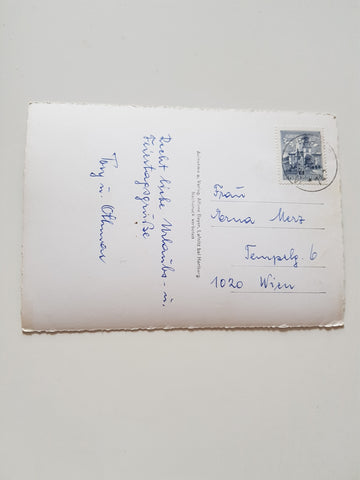 Recht liebe Urlaubs- u.
Feiertagsgrüße
Tony u. Othmar
Aufnahme u. Verlag: Alfons Bayer, Lafnitz bei Hartberg
Nachdruck verboten
Frau
Merz
Tempelg 6
1020 Wien